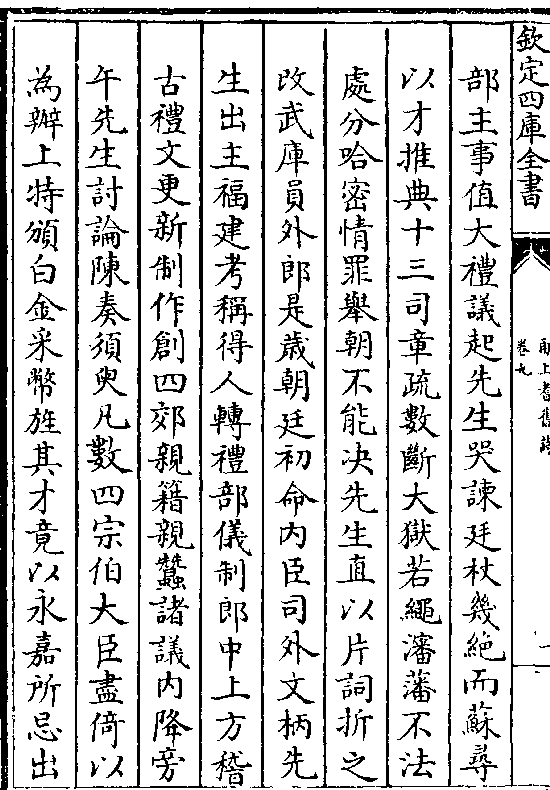 欽定四庫全書
甬上耆舊詩
卷九
部主事值大禮議起先生哭諫廷杖幾絶而蘇尋
以才推典十三司章疏數斷大獄若繩瀋藩不法
處分哈密情罪舉朝不能决先生直以片詞折之
改武庫員外郎是歲朝廷初命内臣司外文柄先
生出主福建考稱得人轉禮部儀制郎中上方稽
古禮文更新制作創四郊親籍親蠶諸議内降旁
午先生討論陳奏須臾凡數四宗伯大臣盡倚以
為辦上特頒白金采幣旌其才竟以永嘉所忌出